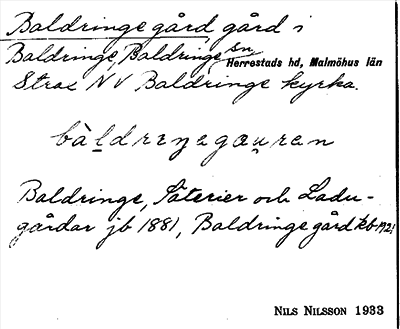 Baldringe gård gård i
Baldringe, Baldringe sn
Herrestads hd, Malmöhus län
Strax NV Baldringe kyrka.
bàldreŋegau̯ren
Baldringe, Säterier och Ladu-
gårdar jb 1881, Baldringe gård kb 1921
NILS NILSSON 1933